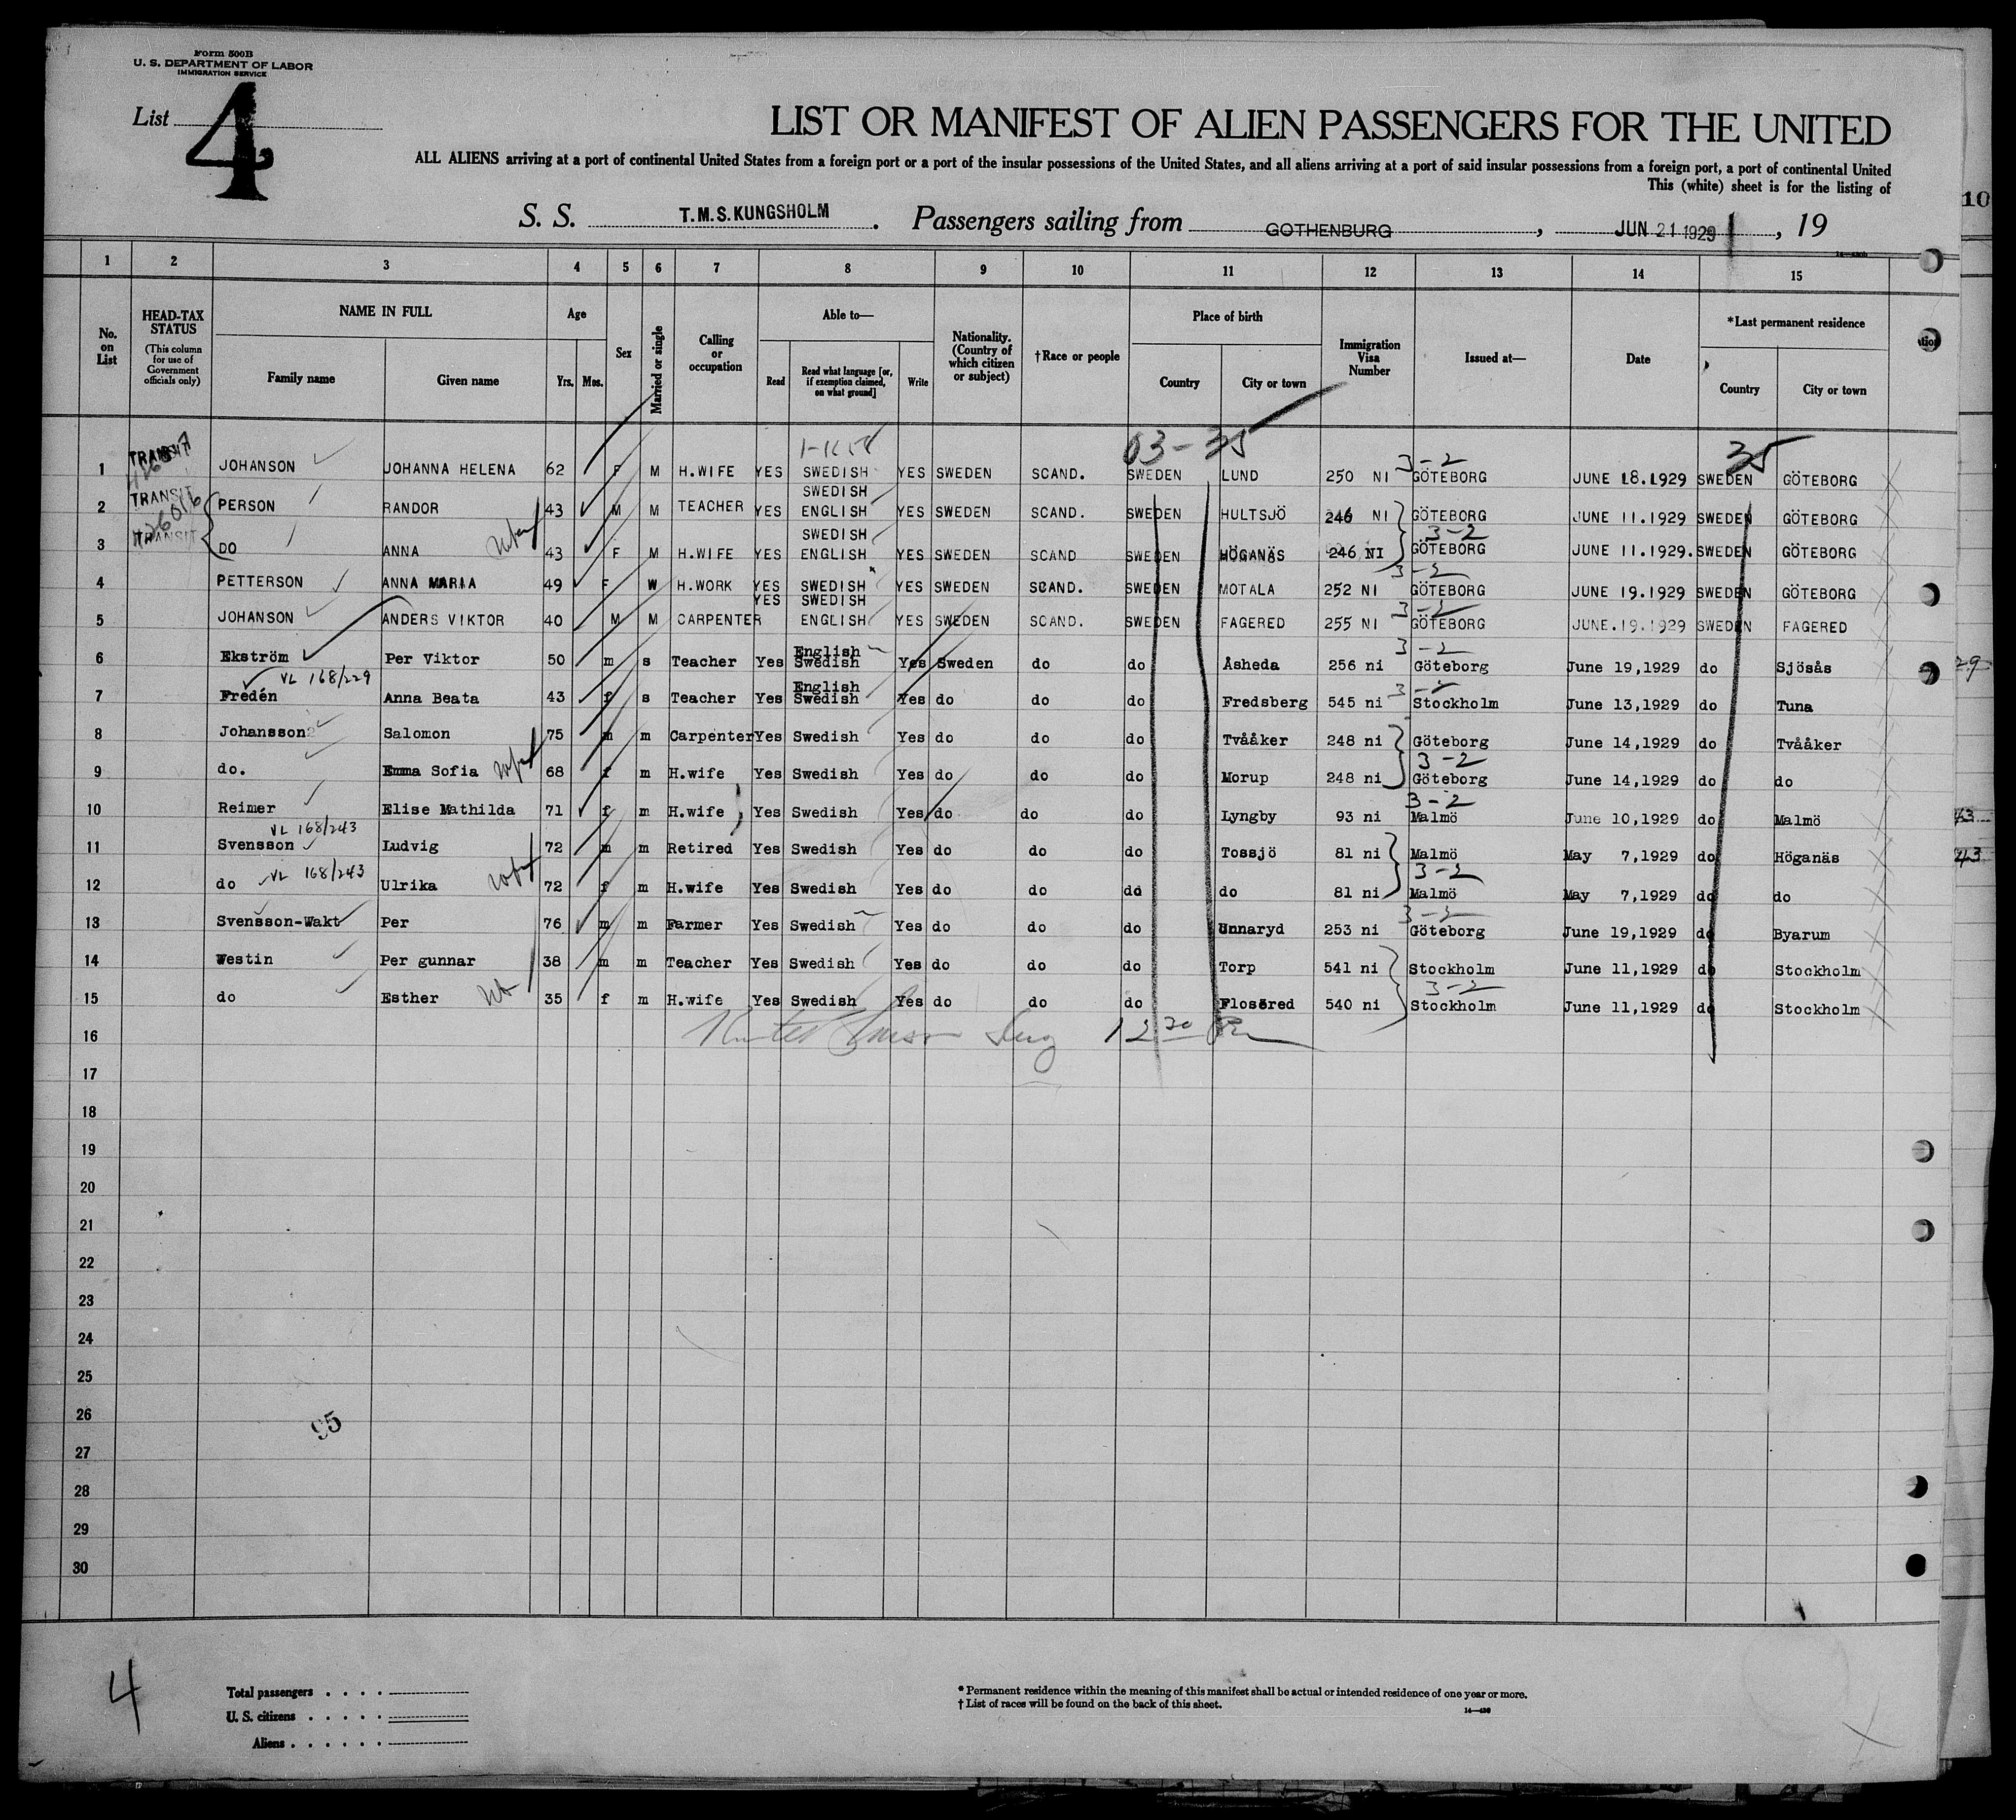 Form 500B
U. S. DEPARTMENT OF LABOR
IMMIGRATION SERVICE
List 4
LIST OR MANIFEST OF ALIEN PASSENGERS FOR THE UNITED
ALL ALIENS arriving at a port of continental United States from a foreign port or a port of the insular possessions of the United States, and all aliens arriving at a port of said insular possessions from a foreign port, a port of continental United
This (white) sheet is for the listing of
10
S. S. T.M.S.KUNGSHOLM. Passengers sailing from GOTHENBURG, JUN 21 1929, 19
1 2 3 4 5 6 7 8 9 10 11 12 13 14 15
No. on List
HEAD-TAX STATUS (This column for use of Government officials only)
NAME IN FULL Family name Given name
Age Yrs. Mos.
Sex
Married or single
Calling or occupation
Able to— Read Read what language [or, if exemption claimed, on what ground] Write
Nationality. (Country of which citizen or subject)
†Race or people
Place of birth Country City or town
Immigration Visa Number
Issued at—
Date
*Last permanent residence Country City or town
03-35 35
1 TRANSIT JOHANSON JOHANNA HELENA 62 F M H.WIFE YES SWEDISH YES SWEDEN SCAND. SWEDEN LUND 250 NI 3-2 GÖTEBORG JUNE 18.1929 SWEDEN GÖTEBORG
2 TRANSIT PERSON RANDOR 43 M M TEACHER YES SWEDISH ENGLISH YES SWEDEN SCAND. SWEDEN HULTSJÖ 246 NI GÖTEBORG JUNE 11.1929 SWEDEN GÖTEBORG
3 TRANSIT DO ANNA 43 F M H.WIFE YES SWEDISH ENGLISH YES SWEDEN SCAND SWEDEN HÖGANÄS 246 NI 3-2 GÖTEBORG JUNE 11.1929. SWEDEN GÖTEBORG
4 PETTERSON ANNA MARIA 49 F W H.WORK YES SWEDISH YES SWEDEN SCAND. SWEDEN MOTALA 252 NI 3-2 GÖTEBORG JUNE 19.1929 SWEDEN GÖTEBORG
5 JOHANSON ANDERS VIKTOR 40 M M CARPENTER YES SWEDISH ENGLISH YES SWEDEN SCAND. SWEDEN FAGERED 255 NI 3-2 GÖTEBORG JUNE.19.1929 SWEDEN FAGERED
6 Ekström Per Viktor 50 m s Teacher Yes English Swedish Yes Sweden do do Åsheda 256 ni 3-2 Göteborg June 19,1929 do Sjösås 29
VL 168/229
7 Fredén Anna Beata 43 f s Teacher Yes English Swedish Yes do do do Fredsberg 545 ni 3-2 Stockholm June 13,1929 do Tuna
8 Johansson Salomon 75 m m Carpenter Yes Swedish Yes do do do Tvååker 248 ni Göteborg June 14,1929 do Tvååker
9 do. Emma Sofia 68 f m H.wife Yes Swedish Yes do do do Morup 248 ni 3-2 Göteborg June 14,1929 do do
10 Reimer Elise Mathilda 71 f m H.wife Yes Swedish Yes do do do Lyngby 93 ni 3-2 Malmö June 10,1929 do Malmö
VL 168/243
11 Svensson Ludvig 72 m m Retired Yes Swedish Yes do do do Tossjö 81 ni Malmö May 7,1929 do Höganäs 43
VL 168/243
12 do Ulrika 72 f m H.wife Yes Swedish Yes do do do do 81 ni 3-2 Malmö May 7,1929 do do
13 Svensson-Wakt Per 76 m m Farmer Yes Swedish Yes do do do Unnaryd 253 ni 3-2 Göteborg June 19,1929 do Byarum
14 Westin Per gunnar 38 m m Teacher Yes Swedish Yes do do do Torp 541 ni Stockholm June 11,1929 do Stockholm
15 do Esther 35 f m H.wife Yes Swedish Yes do do do Flosered 540 ni 3-2 Stockholm June 11,1929 do Stockholm
16
17
18
19
20
21
22
23
24
25
26
27
28
29
30
95
4
Total passengers . . . .
U. S. citizens . . . . .
Aliens . . . . . .
* Permanent residence within the meaning of this manifest shall be actual or intended residence of one year or more.
† List of races will be found on the back of this sheet.